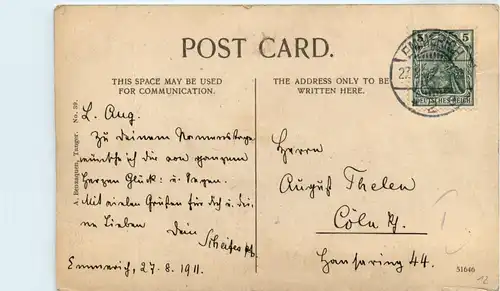 POST CARD.
THIS SPACE MAY BE USED
FOR COMMUNICATION.
THE ADDRESS ONLY TO BE
WRITTEN HERE.
5 5
EMMERICH
DEUTSCHES REICH
A. Benzaquen, Tanger. No. 39.
L. Aug.
Zu Deinem Namenstage
wünsche ich Dir von ganzem
Herzen Glück: u. Segen.
Mit vielen Grüßen für Dich u. Dei-
ne Lieben Dein
Emmerich, 27. 8. 1911.
Herrn
August Thelen
Cöln Rh.
Hansaring 44.
51646
12